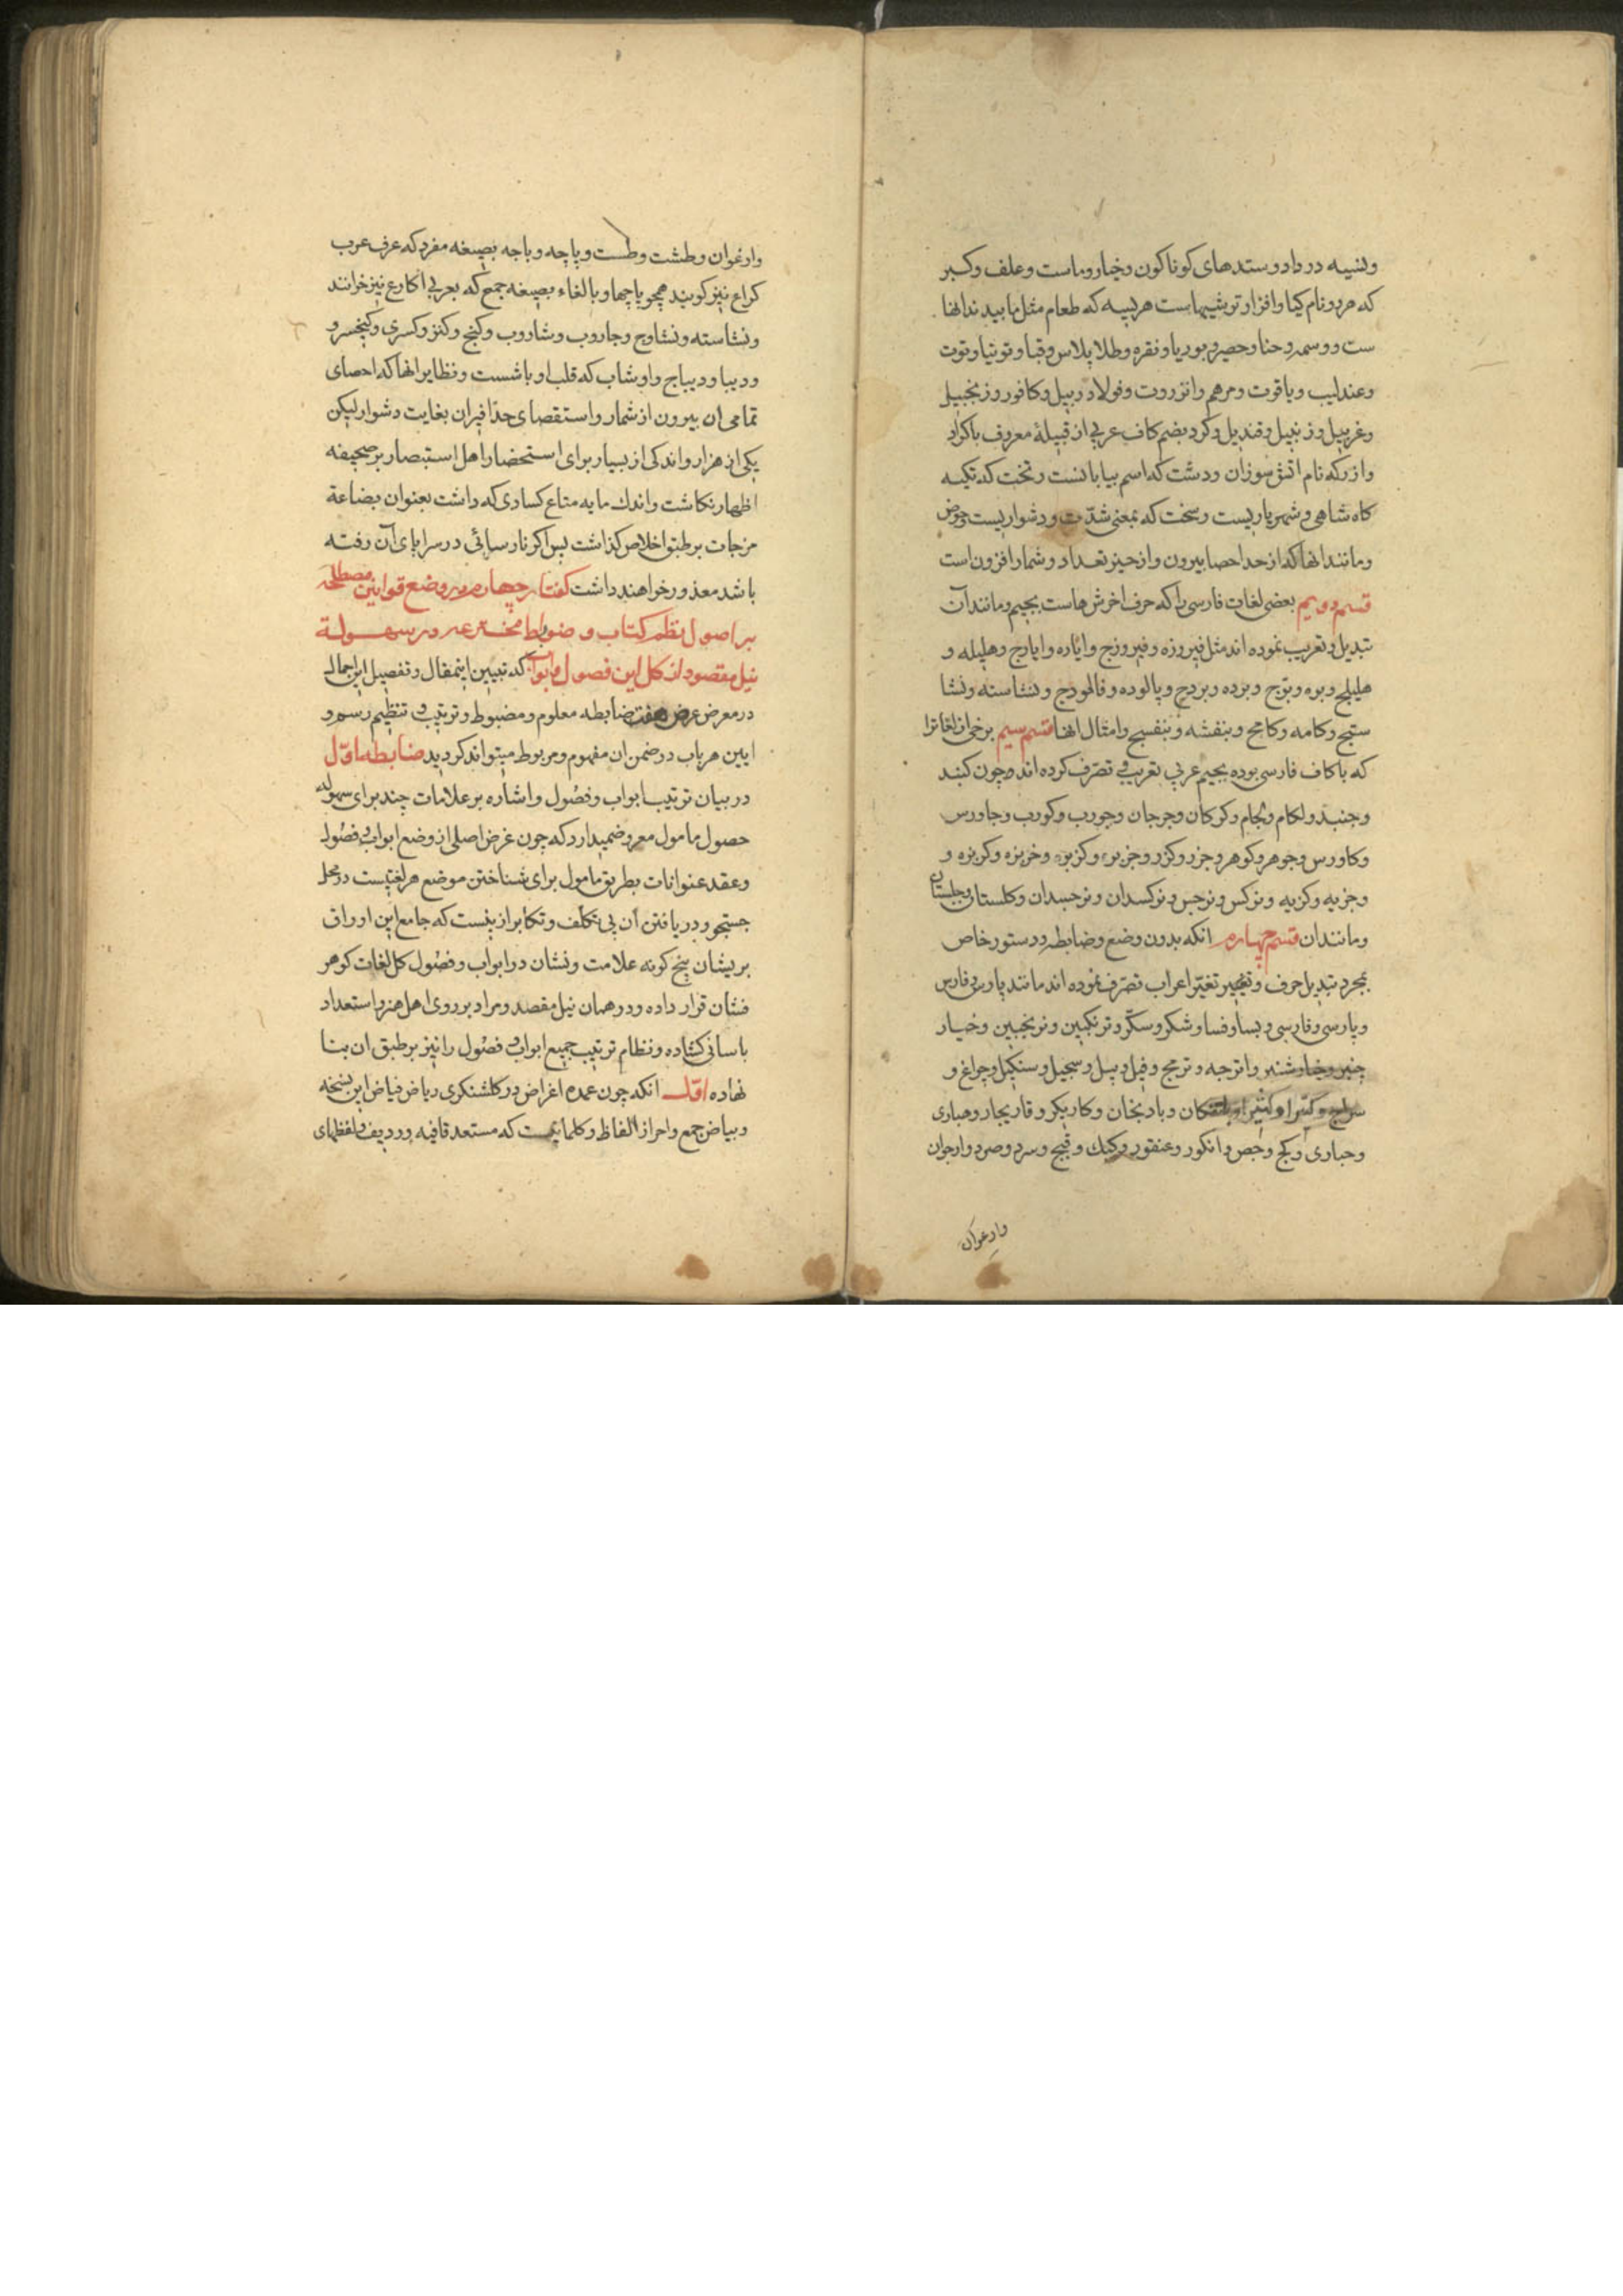 ونسیه در داد وستدهای کوناکون وخیار وماست وعلف وکبر
که هر دو نام کیا وافزار وترشیهاست هریسه که طعام مثل
ست ووسمه وحنا وحصیر وبوریا ونقره وطلا پلاس وقبا وتوتیا وتوت
وعندلیب ویاقوت ومرهم وانزروت وفولاد وبیل وکافور وزنجبیل
وغربیل وزنبیل وقندیل وکرد بضم کاف عربی از قبیلهٔ معروف باکراد
نام اتش سوزان ودشت که اسم بیابانست وتخت که تکیه
کاه شاهی وشهریاریست وسخت که بمعنی شدّت ودشواریست وحوض
ومانند انها که از حد احصا بیرون واز حیز تعداد وشمار افزون است
قسم دویم بعضی لغات فارسی را که حرف اخرش هاست بجیم ومانند آن
تبدیل وتعریب نموده اند مثل فیروزه وفیروزج وایاره وایارج وهلیله و
هلیلج وبوه وبوج وبرده وبردج وپالوده وفالودج ونشاسته ونشا
ستج وکامه وکامخ وبنفشه وبنفسج وامثال انها قسم سیم برخی از لغاترا
که باکاف فارسی بوده بجیم عربی تعریب وتصرّف کرده اند چون کنبد
وجنبد ولکام ولجام وکرکان وجرجان وجورب وکورب وجاورس
وکاورس وجوهر وکوهر وجزر وکزر وجزبره وکزبره وخربزه وکربزه و
وجزیه وکزیه ونرکس ونرجس ونرکسدان ونرجسدان وکلستان وجلستان
ومانند ان قسم چهارم انکه بدون وضع وضابطه ودستور خاص
بمجرد تبدیل حرف وتغییر اعراب تصرّف نموده اند مانند پارس وفارس
وپارسی وفارسی وبسا وفسا وشکر وسکّر وترنکبین وترنجبین وخیار
چنبر وخیارشنبر واترجه وترنج وفیل وپیل وسجیل وسنکیل وچراغ و
سراج وکتیرا وکثیرا وبادنکان وبادنجان وکاریکر وقاریجار وهباری
وحباری وکج وجص وانکور وعنقور وکبک وقبج وسرد وصرد وارجوان
وارغوان
وارغوان وطشت وطست وپاچه وباجه بصیغه مفرد که عرف عرب
کراع نیز کویند همچو پاچها وبالغاء بصیغه جمع که بعربی اکارع نیز خوانند
ونشاسته ونشاوج وجاروب وشاروب وکنج وکنز وکسری وکیخسرو
ودیبا ودیباج واوشاب که قلب او باشست ونظایر انها که احصای
تمامی ان بیرون از شمار واستقصای حدّ افیران بغایت دشوار لیکن
یکی از هزار واندکی از بسیار برای استحضار اهل استبصار بر صحیفه
اظهار نکاشت واندك مایه متاع کسادی که داشت بعنوان بضاعة
مزجات بر طبق اخلاص کذاشت پس اکر نارسائی در سراپای آن رفته
باشد معذور خواهند داشت کفتار چهارم در وضع قوانین مصطلحه
بر اصول نظم کتاب و ضوابط مخترعه در سهولة
نیل مقصود از کل این فصول وابواب که تبیین اینمقال وتفصیل این اجمال
در معرض عرض هفت ضابطه معلوم ومضبوط وترتیب وتنظیم رسم و
ایین هر باب در ضمن ان مفهوم ومربوط میتواند کردید ضابطه اوّل
در بیان ترتیب ابواب وفصول واشاره بر علامات چند برای سهوله
حصول مامول معروض میدارد که چون غرض اصلی از وضع ابواب وفصول
وعقد عنوانات بطریق مامول برای شناختن موضع هر لغتیست در محل
جستجو ودریافتن ان بی تکلّف وتکابر ازینست که جامع این اوراق
پریشان پنج کونه علامت ونشان در ابواب وفصول کل لغات کوهر
فشان قرار داده ودر همان نیل مقصد ومراد بر روی اهل هنر واستعداد
باسانی کشاده ونظام ترتیب جمیع ابواب وفصول را نیز بر طبق ان بنا
نهاده اوّل انکه چون عمده اغراض در کلشنکری ریاض فیاض این نسخه
وبیاض جمع واحراز الفاظ وکلماتیست که مستعد قافیه وردیف ولفظهای